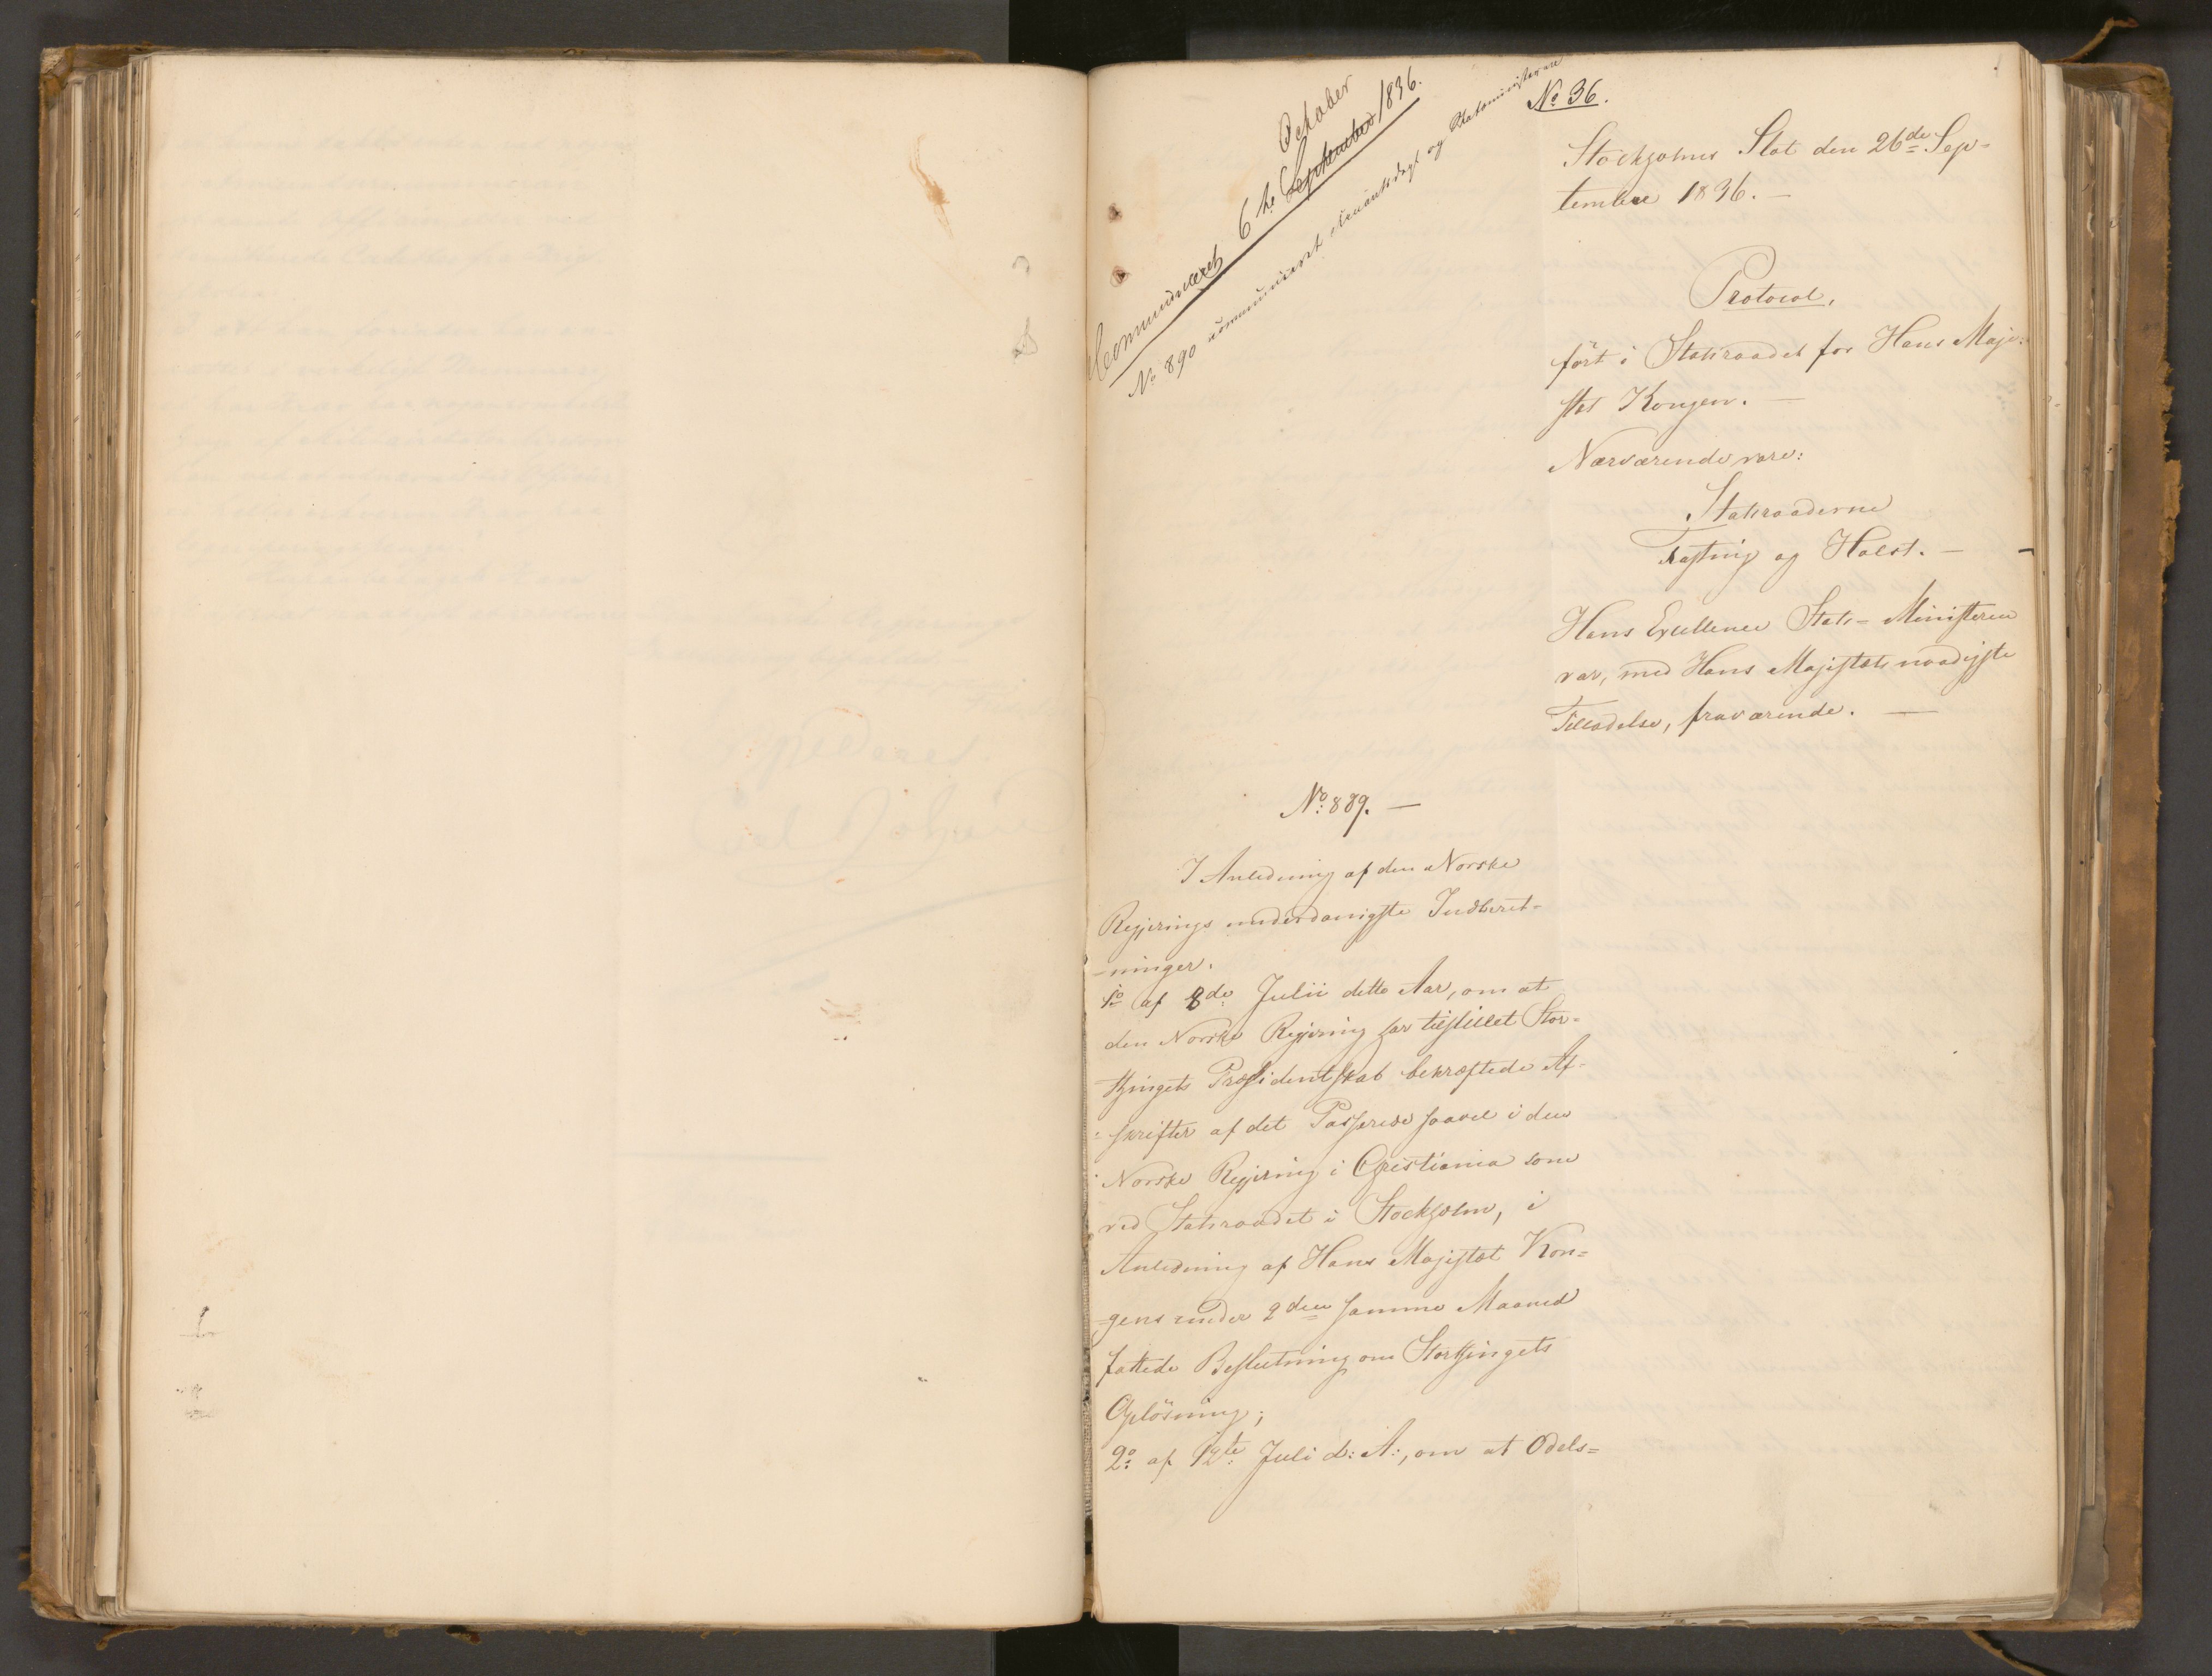 October
Communiceret 6te September 1836.
No 890 communiceret Statsministeren
No 36.
Stockholms Slot den 26de Sep-
tember 1836. —
Protocol,
ført i Statsraadet for Hans Maje-
stæt Kongen. —
Nærværende vare:
Statsraaderne
Fasting og Holst. —
Hans Excellence Stats-Ministeren
var, med Hans Majestæts naadigste
Tilladelse, fraværende. —
No: 889. —
I Anledning af den Norske
Regjerings underdanigste Indberet-
-ninger.
1o af 8de Julii dette Aar, om at
den Norske Regjering har tilstillet Stor-
-thingets Præsidentskab bekræftede Af-
-skrifter af det Passerede saavel i den
Norske Regjering i Christiania som
ved Statsraadet i Stockholm, i
Anledning af Hans Majestæt Kon-
-gens under 2den samme Maaned
fattede Beslutning om Storthingets
Opløsning;
2o: af 12te Juli d: A:, om at Odels-